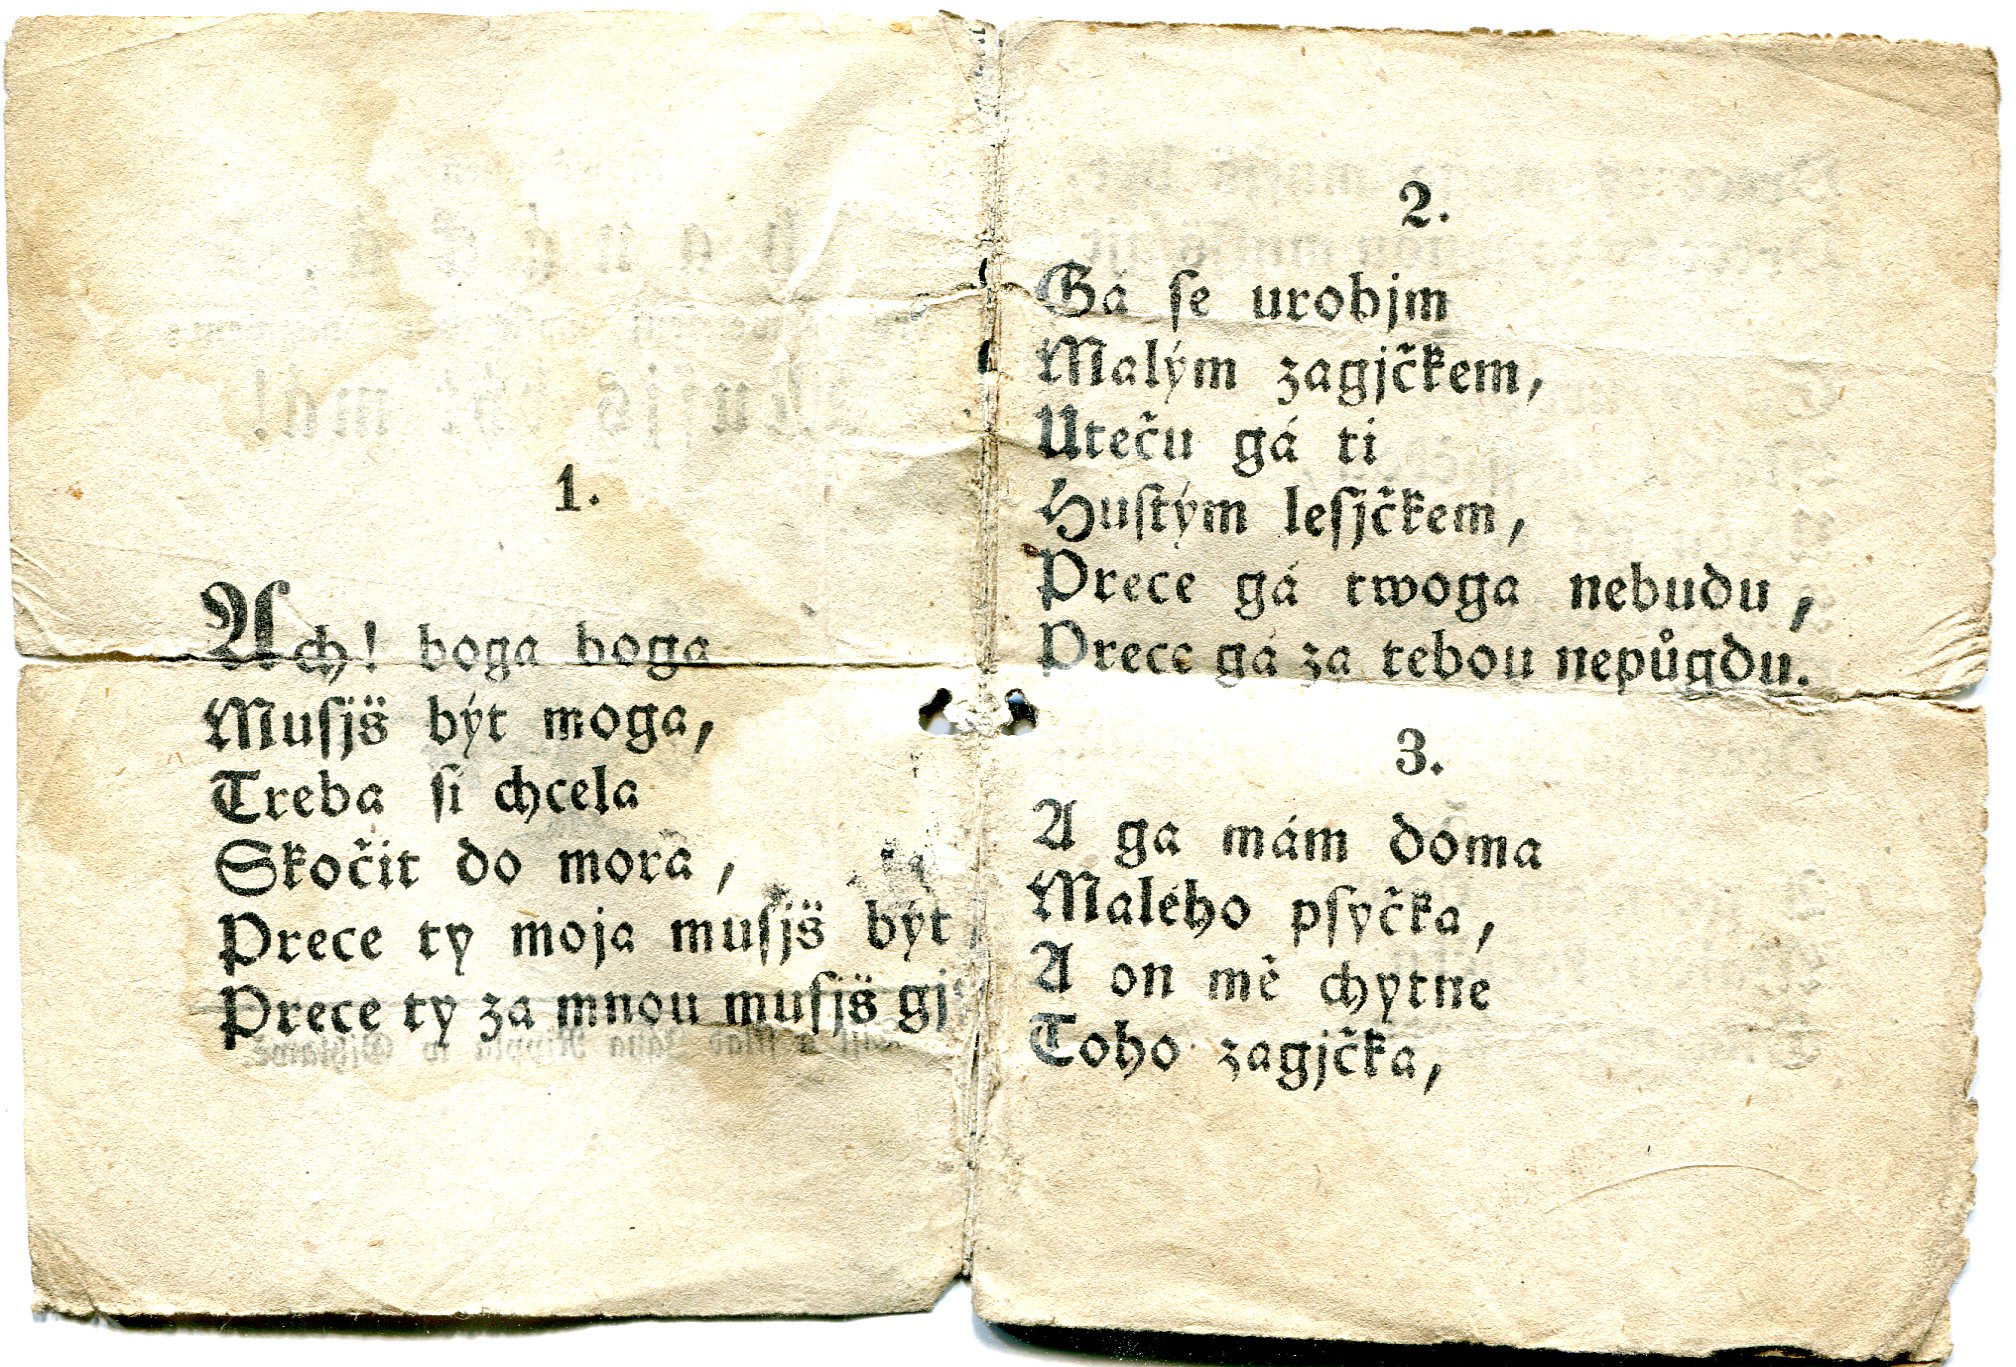 1.
Ach! boga boga
Muſjš být moga,
Treba ſi chcela
Skočit do mora,
Prece ty moja muſjš být
Prece ty za mnou muſjš
2.
Gá ſe urobjm
Malým zagjčkem,
Uteču gá ti
Huſtým leſjčkem,
Prece gá twoga nebudu,
Prece gá za tebou nepůgdu.
3.
A ga mám doma
Malého pſyčka,
A on mě chytne
Toho zagjčka,